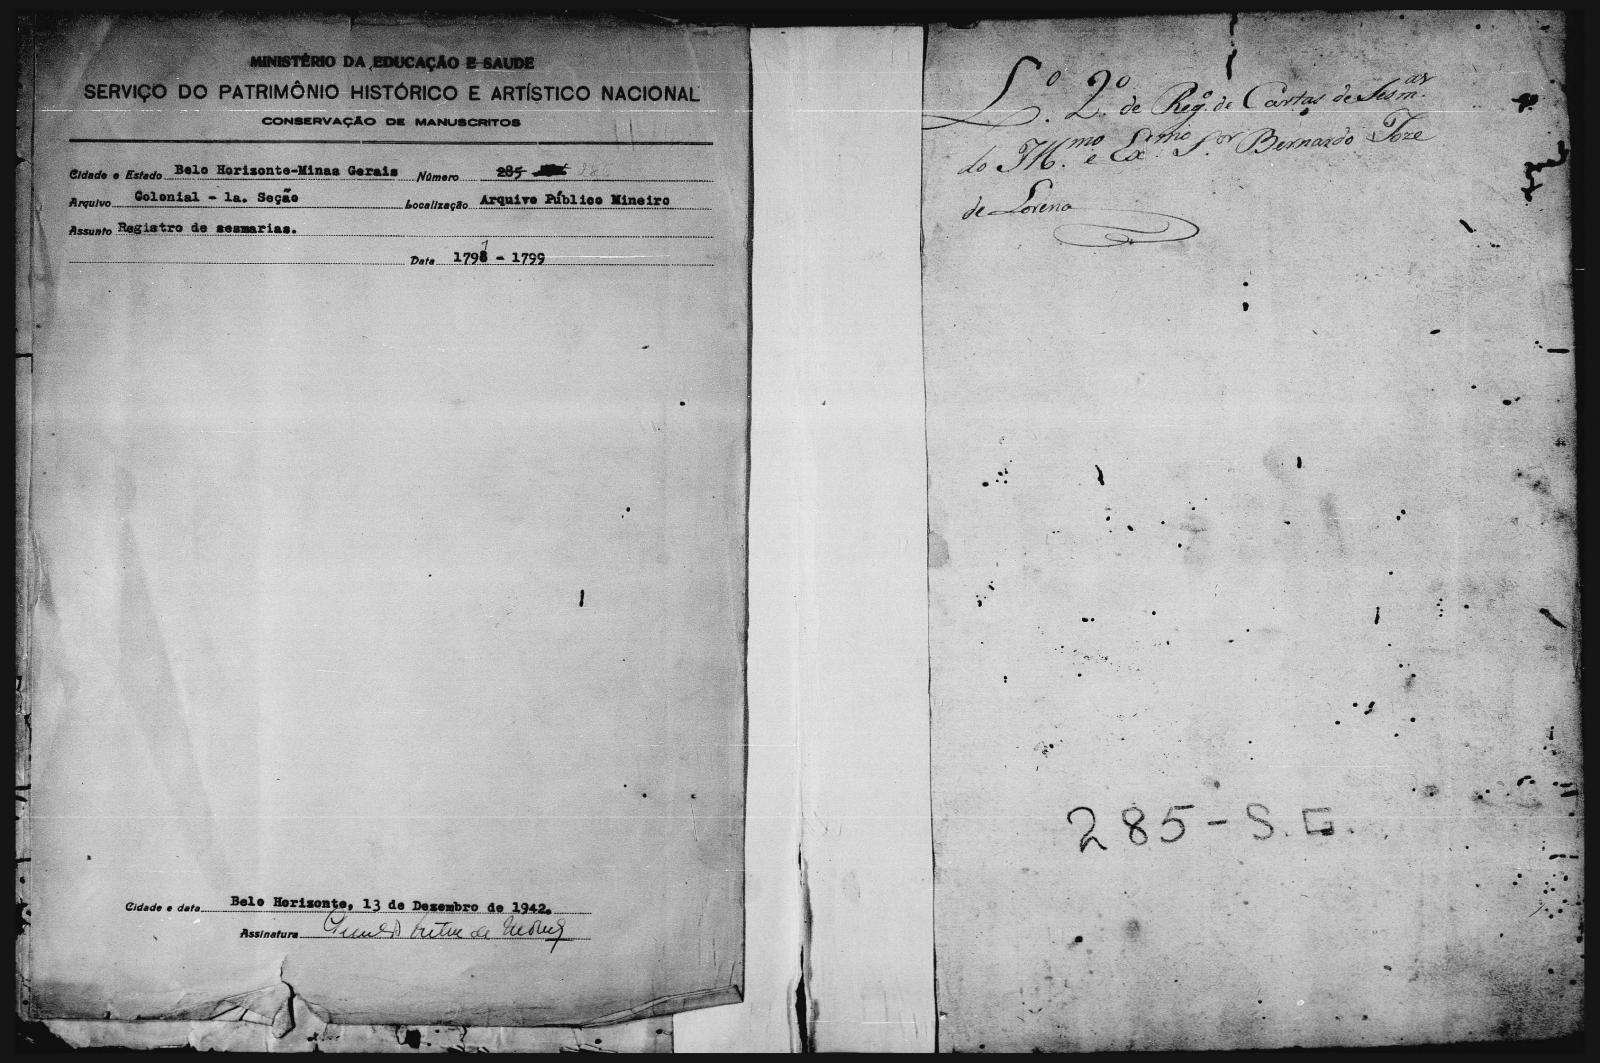 MINISTÉRIO DA EDUCAÇÃO E SAUDE
SERVIÇO DO PATRIMÔNIO HISTÓRICO E ARTÍSTICO NACIONAL
CONSERVAÇÃO DE MANUSCRITOS
Cidade e Estado Belo Horizonte-Minas Gerais Número 285
Arquivo Colonial - 1a. Seção Localização Arquivo Público Mineiro
Assunto Registro de sesmarias.
Data 1797 - 1799
Cidade e data Belo Horizonte, 13 de Dezembro de 1942.
Assinatura
L.º 2.º de Reg.º de Cartas de Sesm.ar
do Ill.mo e Ex.mo S.or Bernardo Joze
de Lorena
285 - S. G.